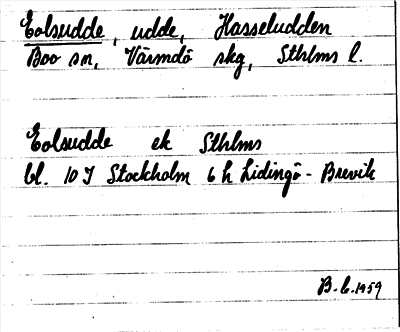 Eolsudde, udde, Hasseludden
Boo sn, Värmdö skg, Sthlms l.
Eolsudde ek Sthlms
bl. 10 I Stockholm 6 h Lidingö - Brevik
B.C. 1959